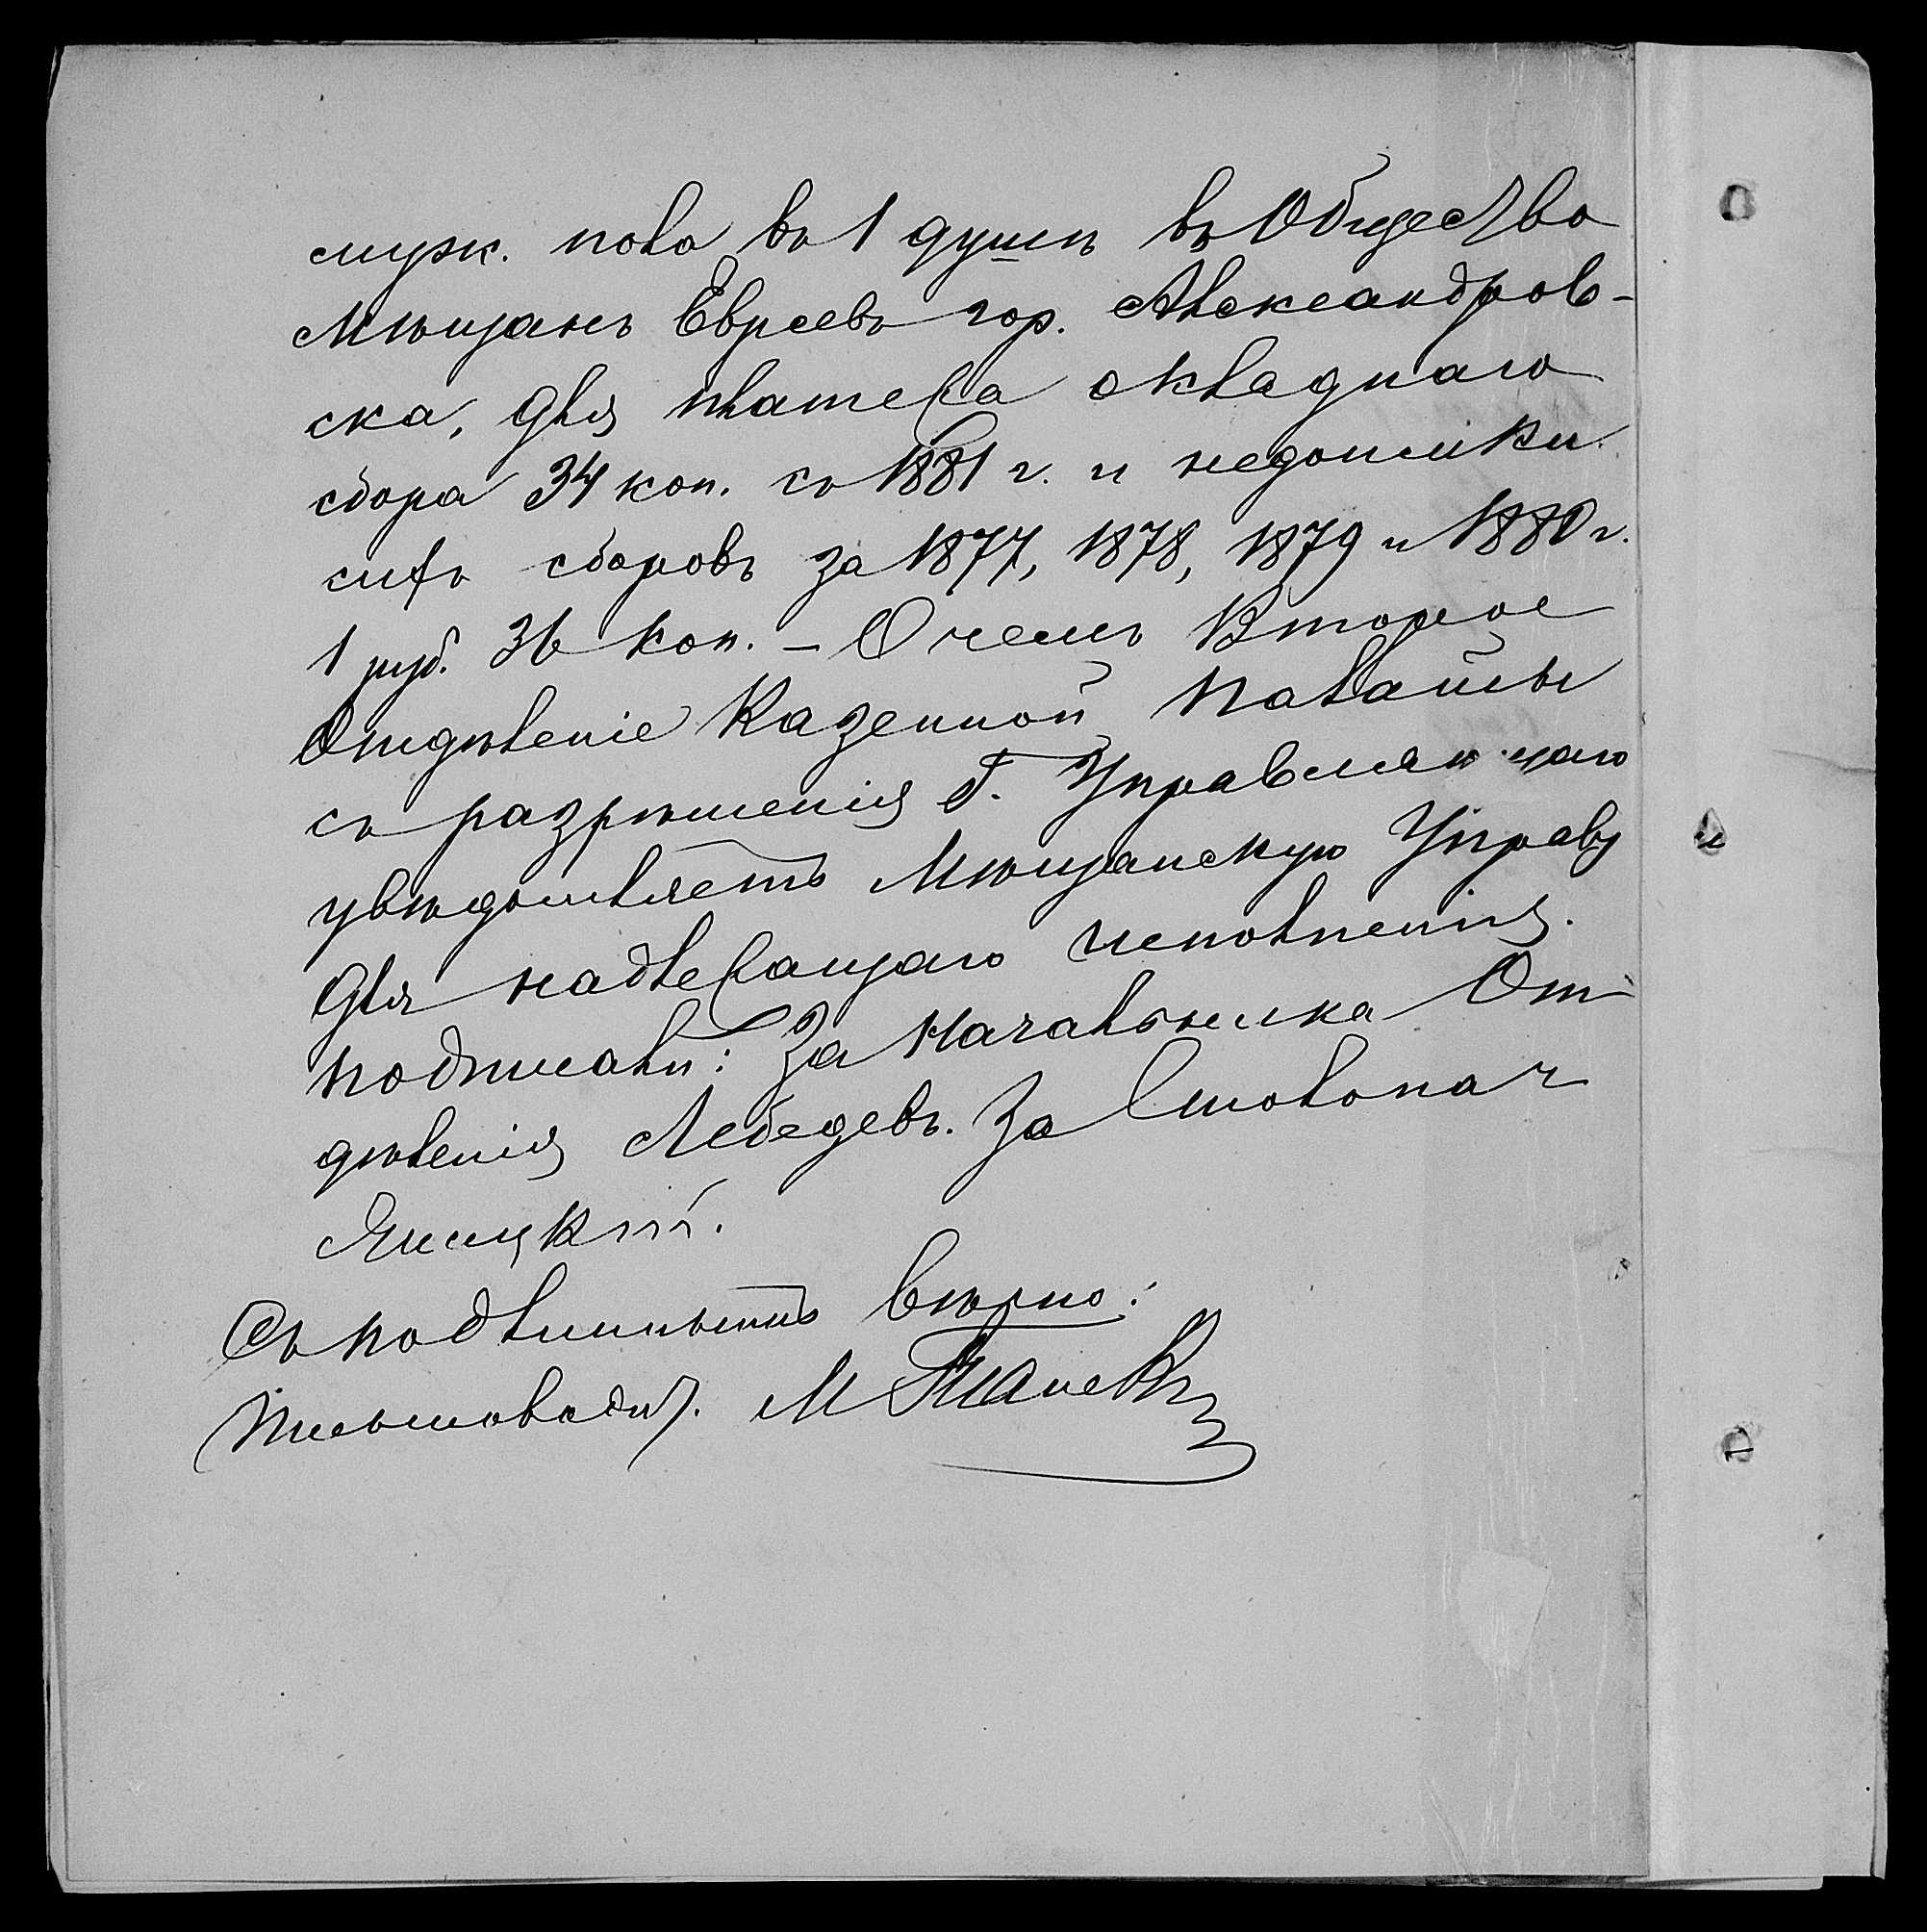 муж. пола въ 1 душѣ въ Общество
Мѣщанъ Евреевъ гор. Александров-
ска, для платежа окладнаго
сбора 34 коп. съ 1881 г. и недоимки
сихъ сборовъ за 1877, 1878, 1879 и 1880 г.
1 руб. 36 коп. – О чемъ Второе
Отдѣленіе Казенной Палаты
съ разрѣшенія Г. Управляющаго
увѣдомляетъ Мѣщанскую Управу
для надлежащаго исполненія.
Подписали: За Начальника От
дѣленія Лебедевъ. За Столонач
Ясицкій.
Съ подлиннымъ вѣрно:
Письмоводит. М